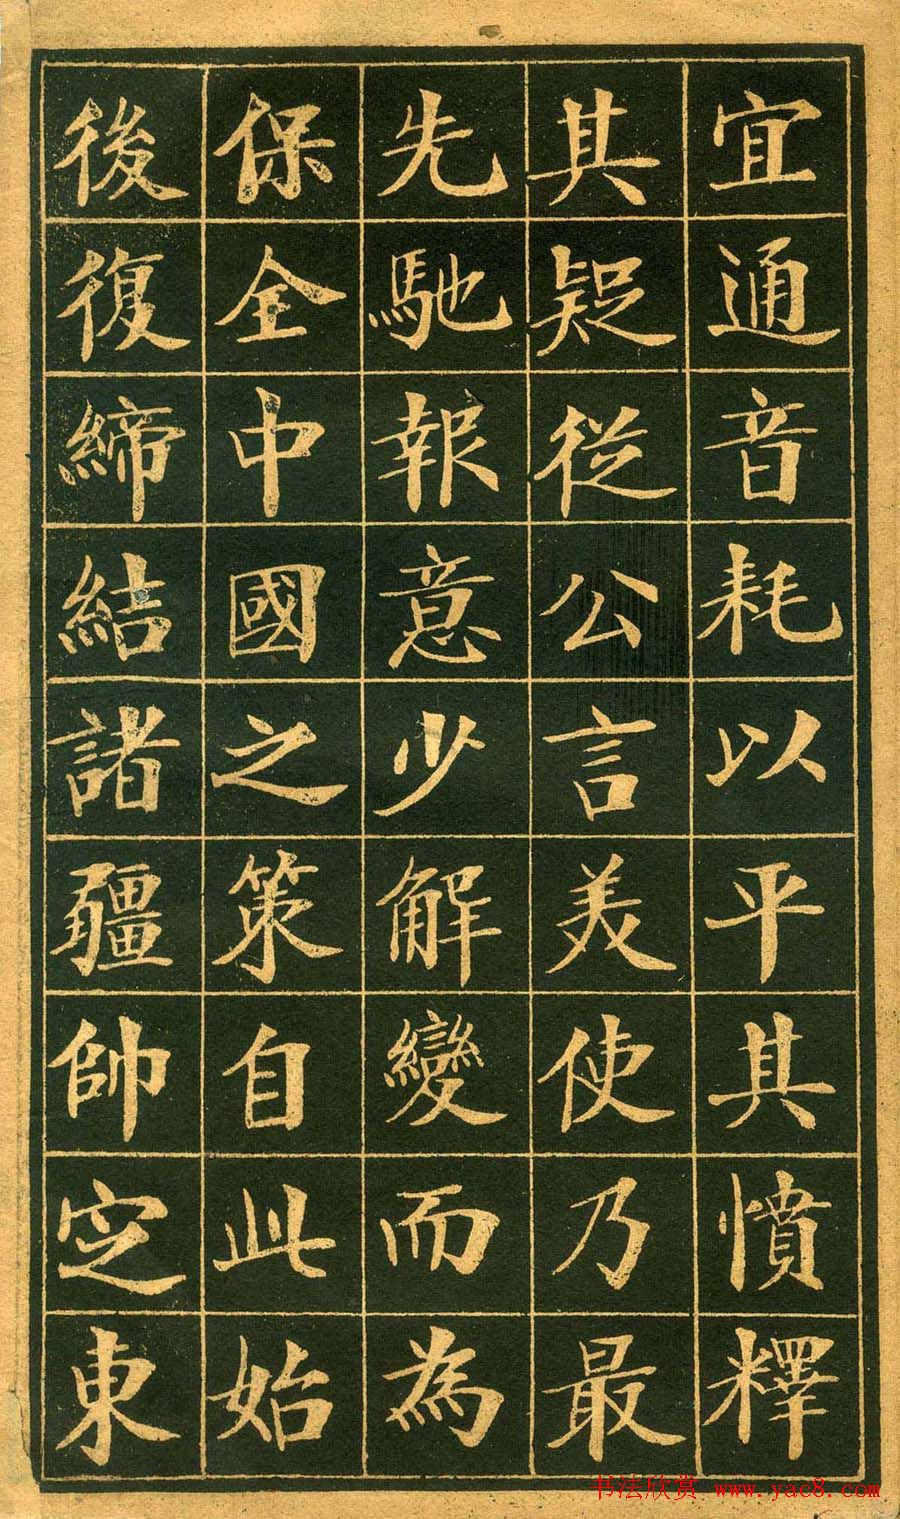 宜通音耗以平其憤釋
其疑從公言美使乃最
先馳報意少解變而為
保全中國之策自此始
後復締結諸疆帥定東
书法欣赏 www.yac8.com